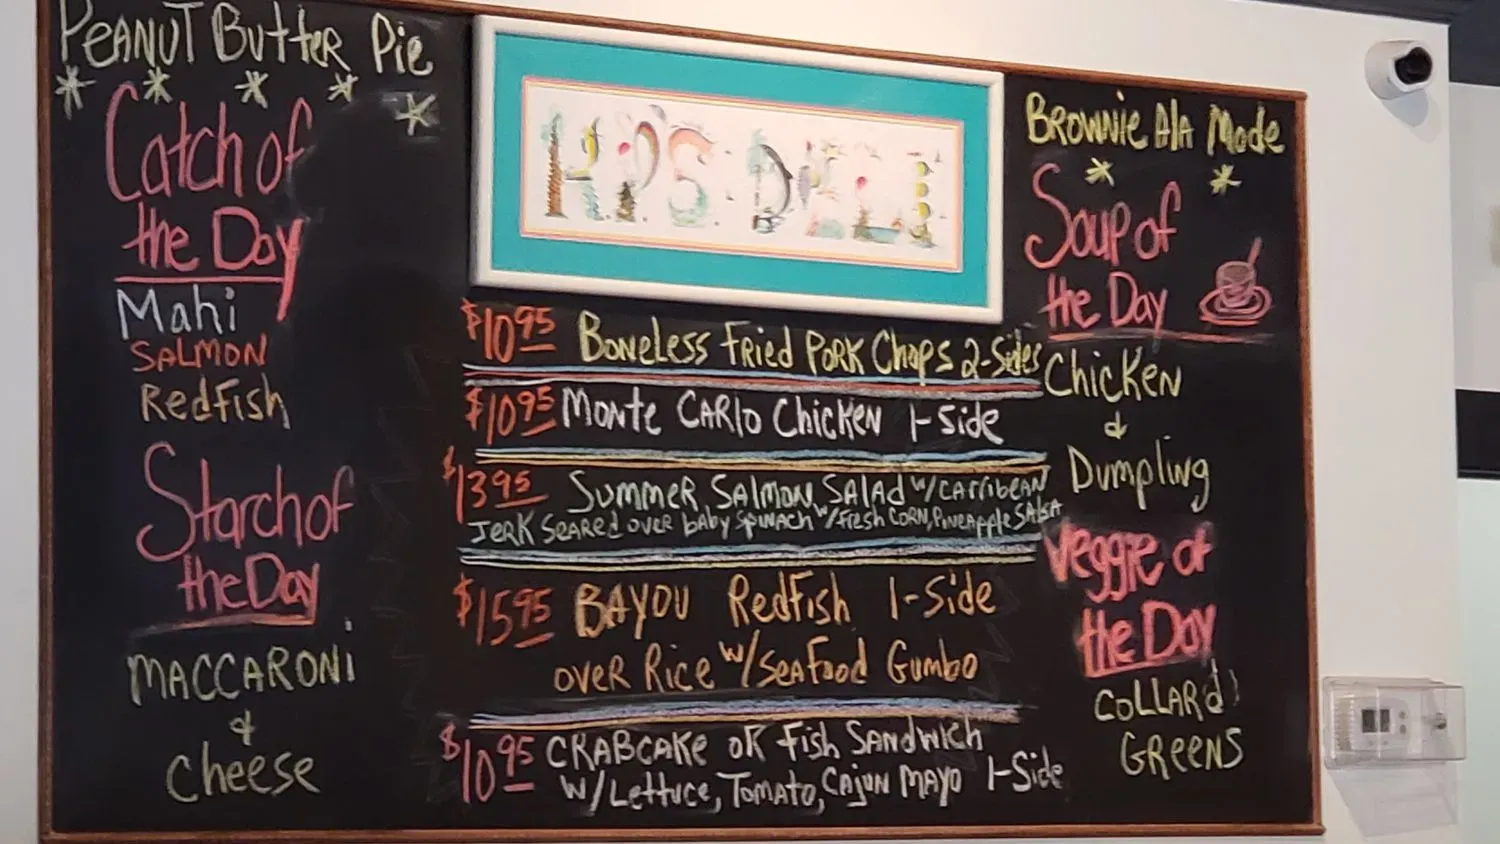 Peanut Butter Pie
Catch of
the Day
Mahi
Salmon
Redfish
Starch of
the Day
Maccaroni
&
Cheese
K.P.'S DELI
$10.95 Boneless Fried Pork Chops 2-Sides
$10.95 Monte Carlo Chicken 1-Side
$13.95 Summer Salmon Salad w/Carribean
Jerk Seared over baby Spinach w/Fresh Corn, Pineapple Salsa
$15.95 Bayou Redfish 1-Side
over Rice w/Seafood Gumbo
$10.95 Crabcake or Fish Sandwich
w/Lettuce, Tomato, Cajun Mayo 1-Side
Brownie Ala Mode
Soup of
the Day
Chicken
&
Dumpling
Veggie of
the Day
Collard
Greens